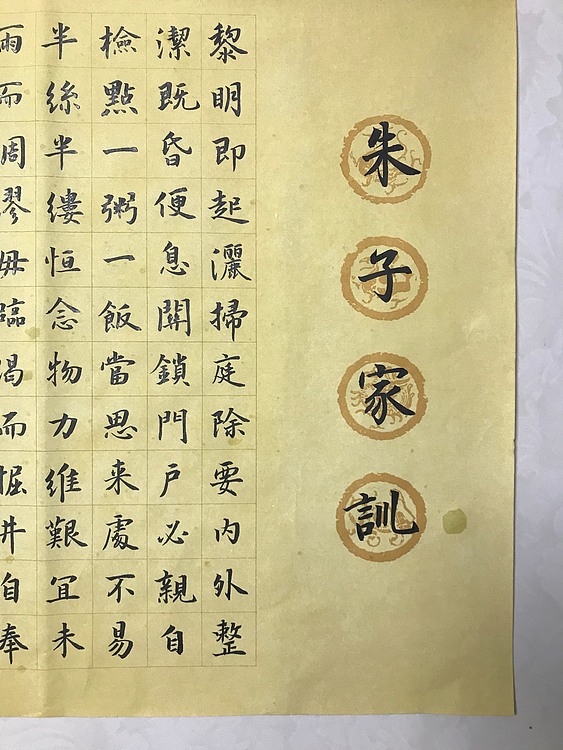 朱子家訓
黎明即起灑掃庭除要内外整
潔既昏便息關鎖門户必親自
檢點一粥一飯當思来處不易
半絲半縷恒念物力維艱宜未
雨而周繆毋臨渴而掘井自奉